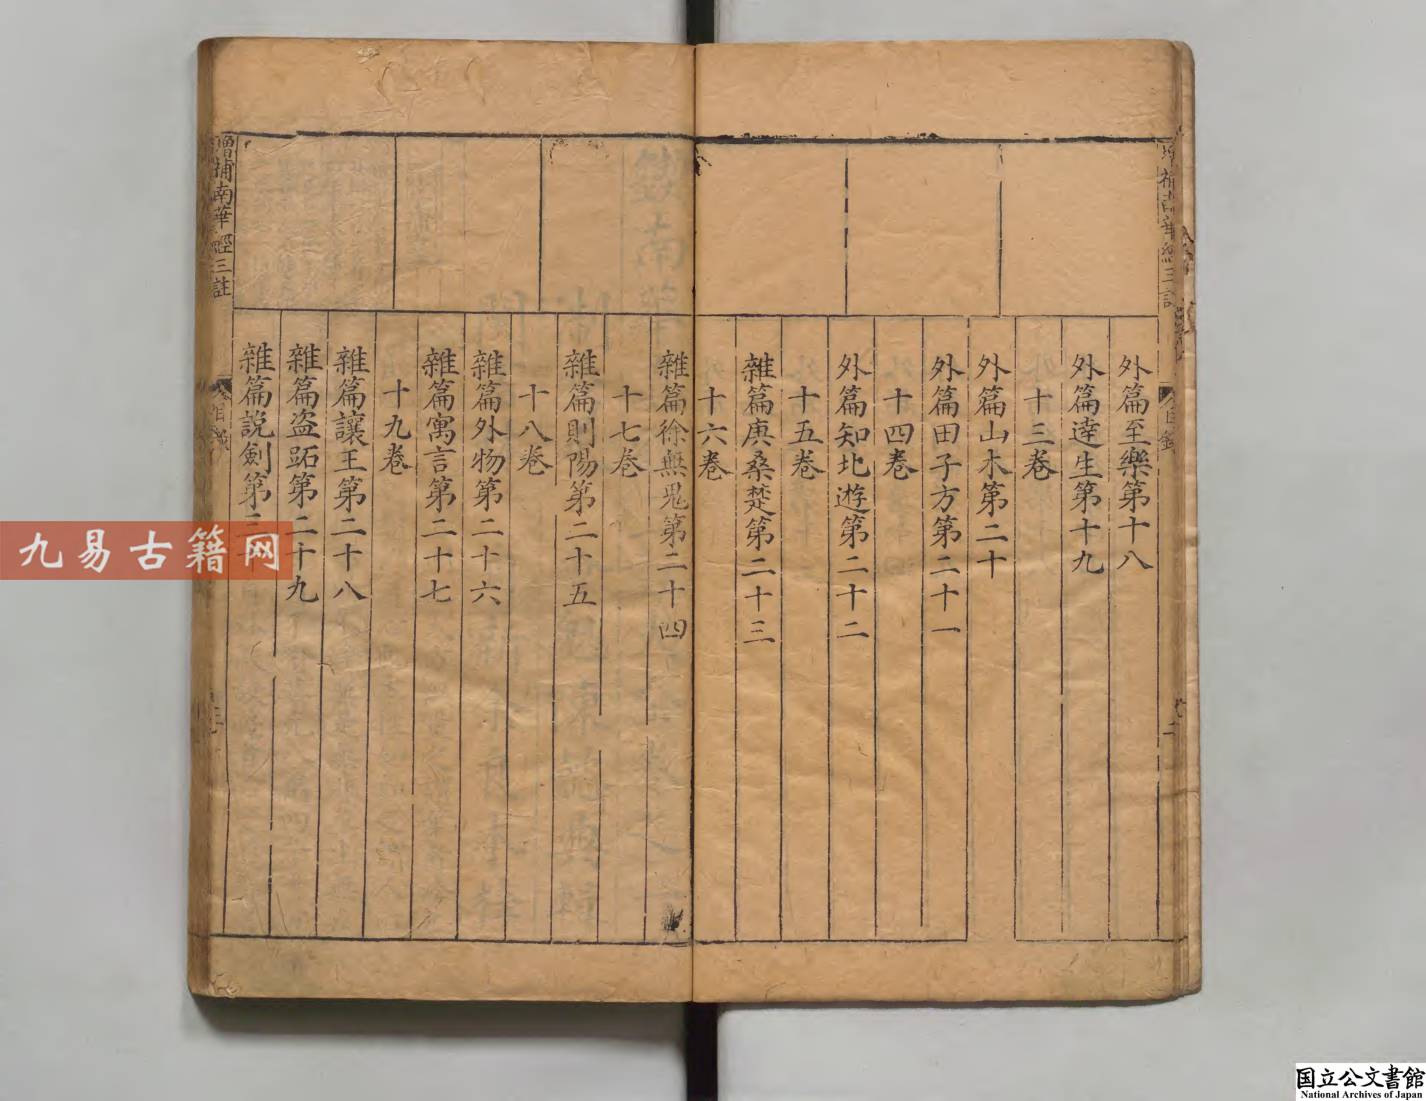 外篇至樂第十八
外篇達生第十九
十三卷
外篇山木第二十
外篇田子方第二十一
十四卷
外篇知北遊第二十二
十五卷
雜篇庚桑楚第二十三
十六卷
雜篇徐無鬼第二十四
十七卷
雜篇則陽第二十五
十八卷
雜篇外物第二十六
雜篇寓言第二十七
十九卷
雜篇讓王第二十八
雜篇盗跖第二十九
雜篇説劍第三
增補南華經三註
目錄
三
九易古籍网
国立公文書館
National Archives of Japan